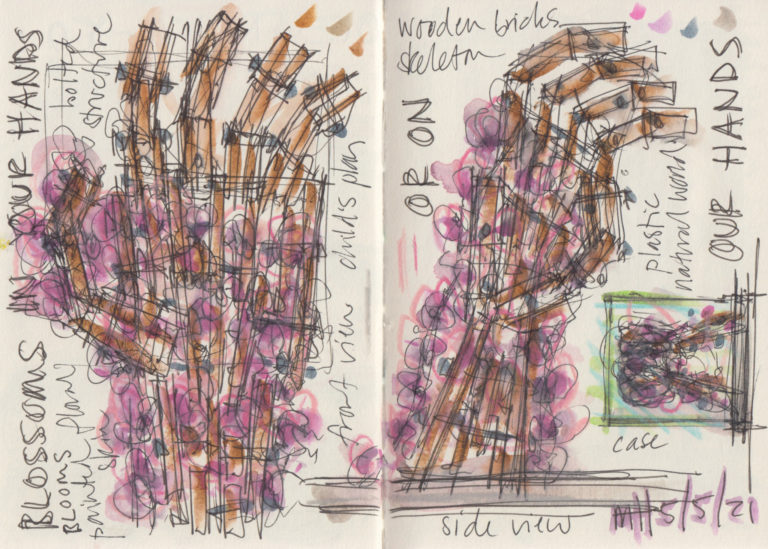 BLOSSOMS IN OUR HANDS
BLOOMS
painted
structure
front view child's play
wooden bricks
skeleton
OR ON
OUR HANDS
plastic
natural wood
case
side view
MH 5/5/21